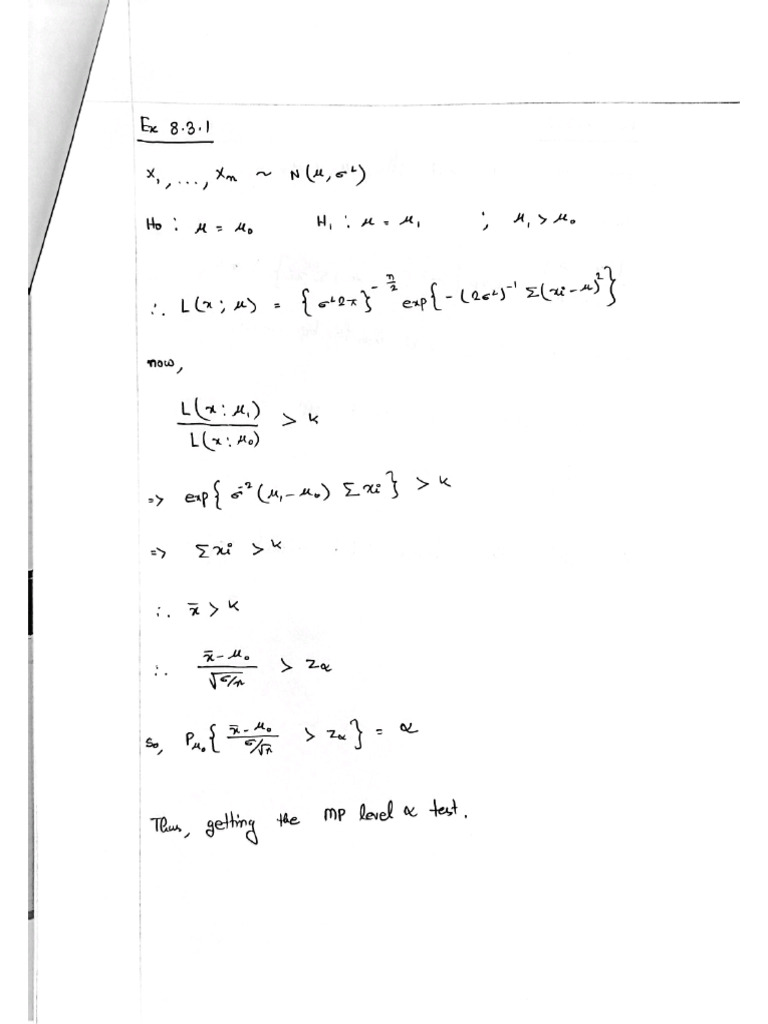 Ex 8.3.1
X₁, ..., Xₙ ~ N(μ, σ²)
H₀ : μ = μ₀   H₁ : μ = μ₁   ; μ₁ > μ₀
∴ L(x ; μ) = {σ²2π}^{-n/2} exp{-(2σ²)⁻¹ Σ(xi - μ)²}
now,
L(x : μ₁) / L(x : μ₀) > k
=> exp{σ⁻²(μ₁ - μ₀) Σxi} > k
=> Σxi > k
∴ x̄ > k
∴ (x̄ - μ₀) / √(σ/n) > zα
So, P_{μ₀}{(x̄ - μ₀) / (σ/√n) > zα} = α
Thus, getting the MP level α test.